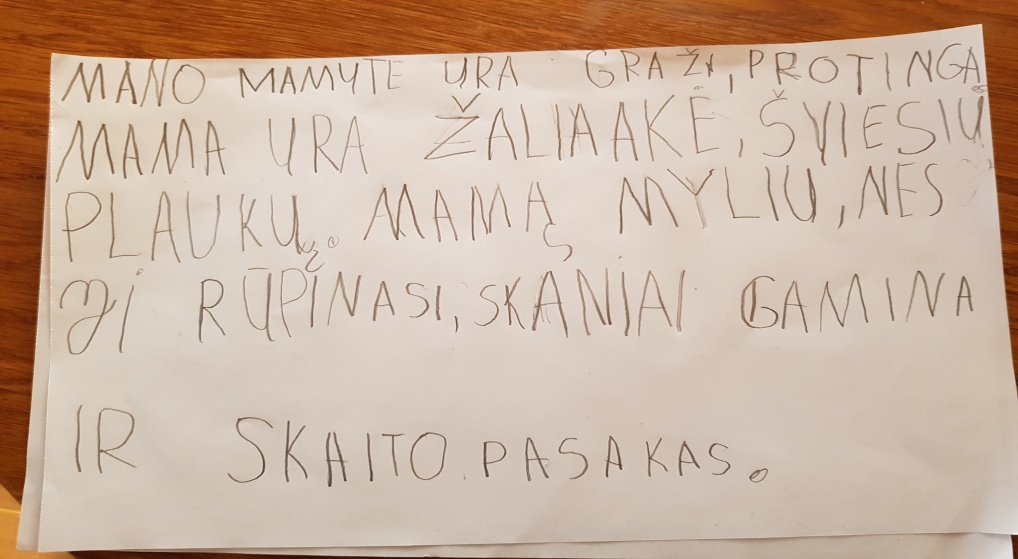 MANO MAMYTE URA GRAŽI, PROTINGA.
MAMA URA ŽALIAAKĖ, ŠVIESIŲ
PLAUKŲ. MAMĄ MYLIU, NES
JI RŪPINASI, SKANIAI GAMINA
IR SKAITO PASAKAS.